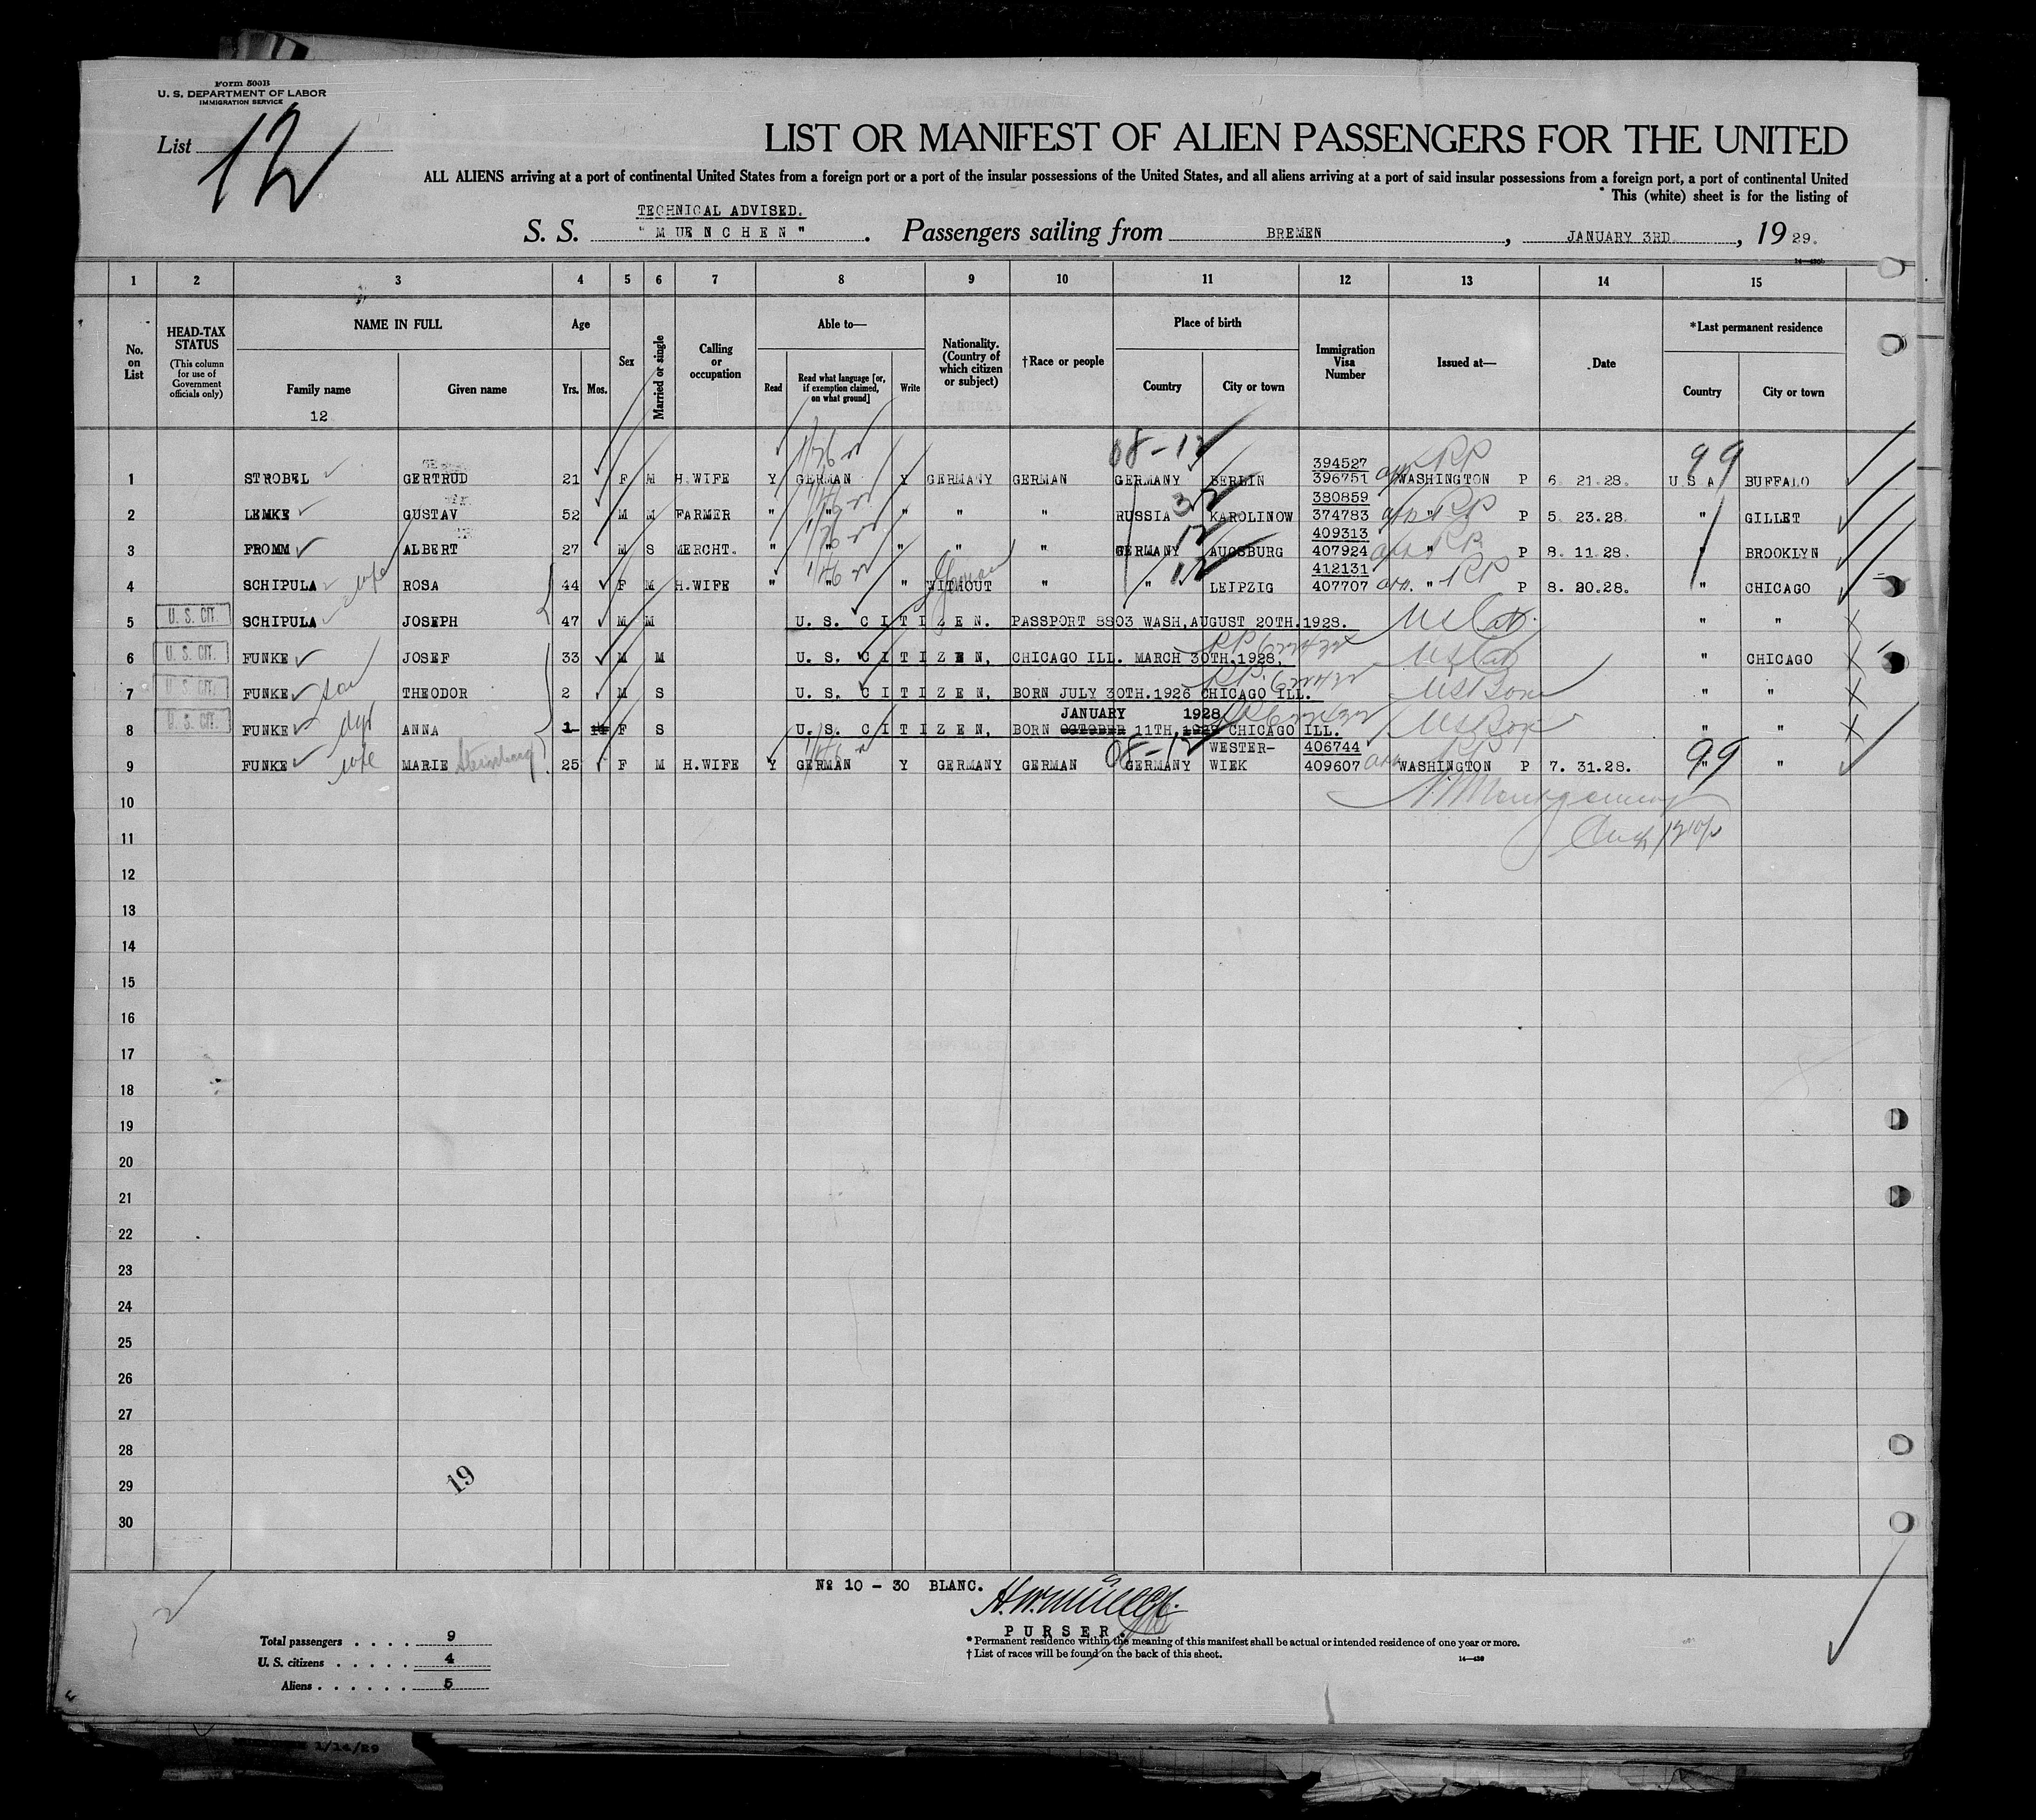 Form 500B
U. S. DEPARTMENT OF LABOR
IMMIGRATION SERVICE
List 12
LIST OR MANIFEST OF ALIEN PASSENGERS FOR THE UNITED
ALL ALIENS arriving at a port of continental United States from a foreign port or a port of the insular possessions of the United States, and all aliens arriving at a port of said insular possessions from a foreign port, a port of continental United
This (white) sheet is for the listing of
TECHNICAL ADVISED.
S. S. "MUENCHEN". Passengers sailing from BREMEN, JANUARY 3RD, 1929.
1 2 3 4 5 6 7 8 9 10 11 12 13 14 15
No. on List
HEAD-TAX STATUS
(This column for use of Government officials only)
NAME IN FULL
Family name
Given name
12
Age
Yrs. Mos.
Sex
Married or single
Calling or occupation
Able to—
Read
Read what language [or, if exemption claimed, on what ground]
Write
Nationality. (Country of which citizen or subject)
†Race or people
Place of birth
Country
City or town
Immigration Visa Number
Issued at—
Date
*Last permanent residence
Country
City or town
08-12 394527 RP 99
1 STROBEL GERTRUD 21 F M H.WIFE Y GERMAN Y GERMANY GERMAN GERMANY BERLIN 396751 WASHINGTON P 6. 21.28. U S A BUFFALO
380859
2 LEMKE GUSTAV 52 M M FARMER " " " " " RUSSIA KAROLINOW 374783 " RP P 5. 23.28. " GILLET
409313
3 FROMM ALBERT 27 M S MERCHT. " " " " " GERMANY AUGSBURG 407924 " RP P 8. 11.28. " BROOKLYN
412131
4 SCHIPULA wife ROSA 44 F M H.WIFE " " " WITHOUT German " " LEIPZIG 407707 " RP P 8. 20.28. " CHICAGO
5 U. S. CIT. SCHIPULA JOSEPH 47 M M U. S. CITIZEN. PASSPORT 8803 WASH,AUGUST 20TH.1928. US Cit. " "
6 U. S. CIT. FUNKE JOSEF 33 M M U. S. CITIZEN, CHICAGO ILL. MARCH 30TH.1928, US Cit " CHICAGO
7 U. S. CIT. FUNKE son THEODOR 2 M S U. S. CITIZEN, BORN JULY 30TH.1926 CHICAGO ILL. US Born " "
JANUARY 1928
8 U. S. CIT. FUNKE ANNA 1 F S U. S. CITIZEN, BORN OCTOBER 11TH, CHICAGO ILL. US Born " "
08-12 WESTER- 406744
9 FUNKE wife MARIE 25 F M H.WIFE Y GERMAN Y GERMANY GERMAN GERMANY WIEK 409607 WASHINGTON P 7. 31.28. 99 " "
10
11
12
13
14
15
16
17
18
19
20
21
22
23
24
25
26
27
28
29
19
30
Nº 10 - 30 BLANC.
PURSER.
Total passengers . . . . 9
U. S. citizens . . . . . 4
Aliens . . . . . . 5
* Permanent residence within the meaning of this manifest shall be actual or intended residence of one year or more.
† List of races will be found on the back of this sheet.
14—430
1/14/29